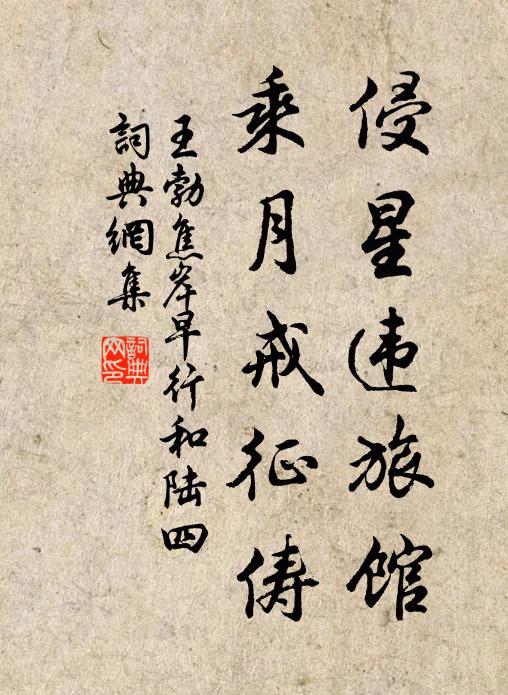 侵星违旅馆
乘月戒征俦
王勃焦岸早行和陆四
詞典網集
詞典網印